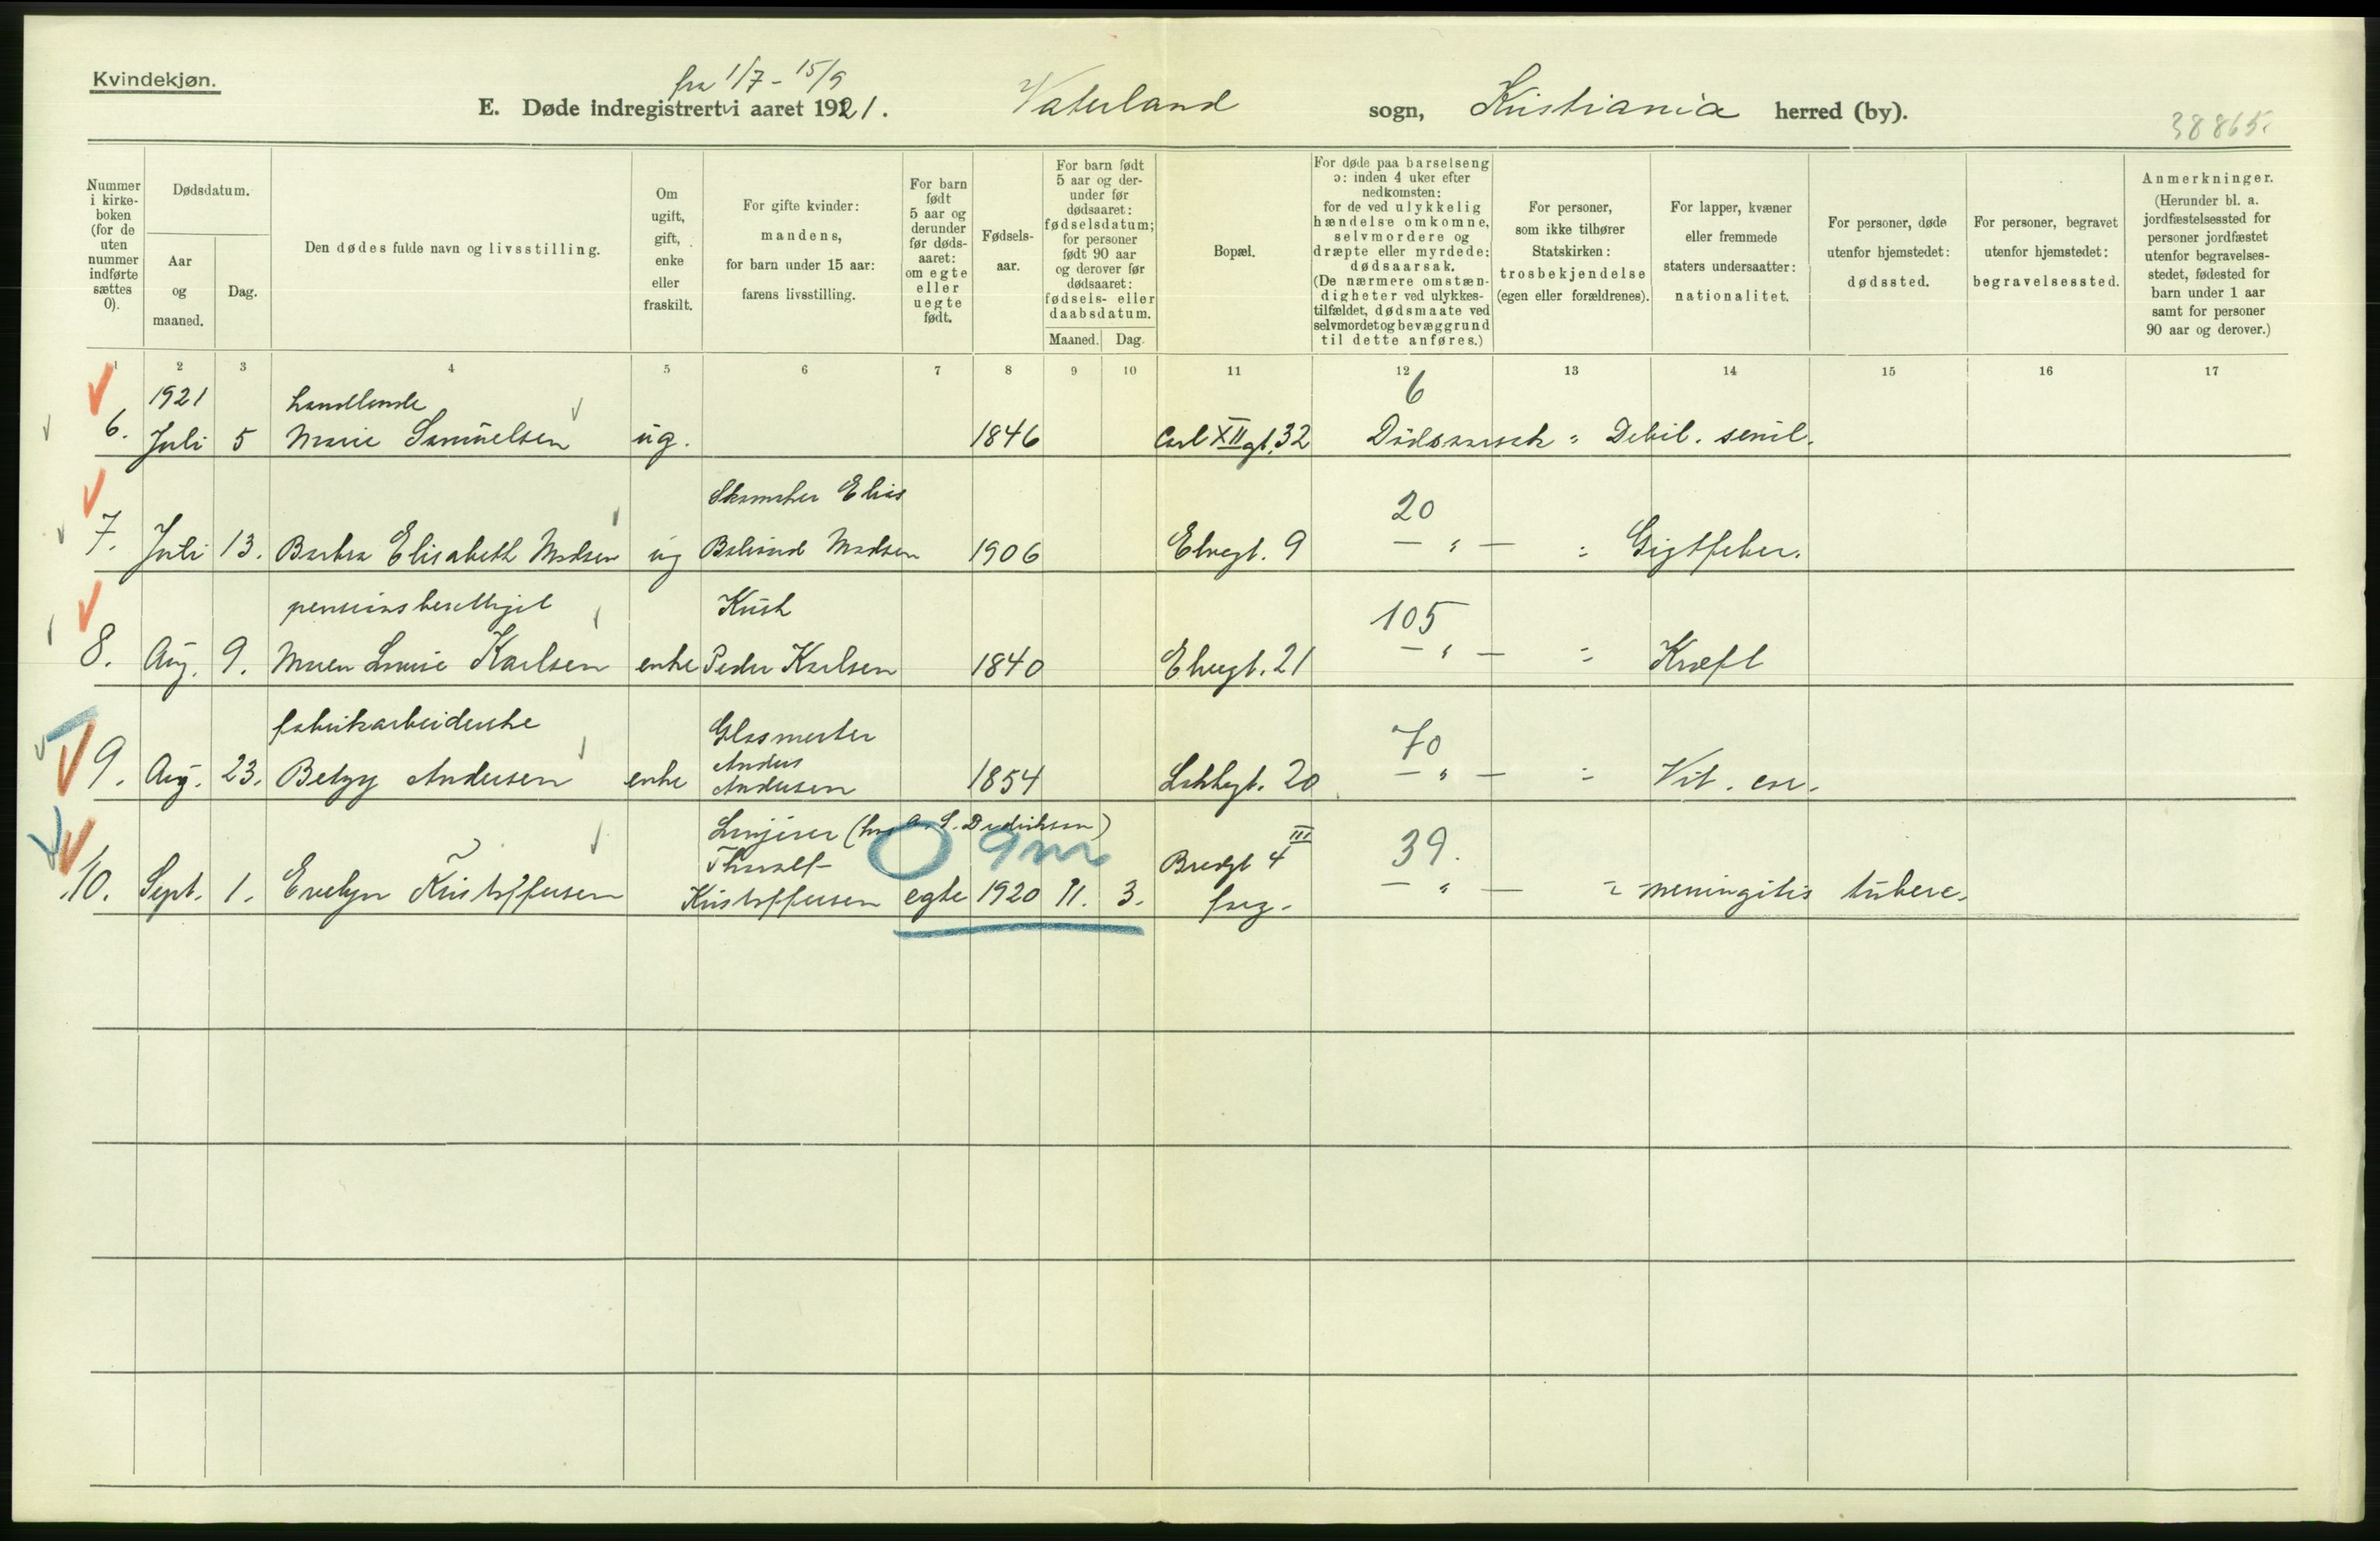 Kvindekjøn.
fra 1/7 - 15/9
E. Døde indregistrert i aaret 1921. Vaterland sogn, Kristiania herred (by).
38865.
Nummer i kirkeboken (for de uten nummer indførte sættes 0).
Dødsdatum.
Aar og maaned.
Dag.
Den dødes fulde navn og livsstilling.
Om ugift, gift, enke eller fraskilt.
For gifte kvinder: mandens, for barn under 15 aar: farens livsstilling.
For barn født 5 aar og derunder før dødsaaret: om egte eller uegte født.
Fødselsaar.
For barn født 5 aar og derunder før dødsaaret: fødselsdatum; for personer født 90 aar og derover før dødsaaret: fødsels- eller daabsdatum.
Maaned. Dag.
Bopæl.
For døde paa barselseng ɔ: inden 4 uker efter nedkomsten; for de ved ulykkelig hændelse omkomne, selvmordere og dræpte eller myrdede: dødsaarsak. (De nærmere omstændigheter ved ulykkestilfældet, dødsmaate ved selvmordet og bevæggrund til dette anføres.)
For personer, som ikke tilhører Statskirken: trosbekjendelse (egen eller forældrenes).
For lapper, kvæner eller fremmede staters undersaatter: nationalitet.
For personer, døde utenfor hjemstedet: dødssted.
For personer, begravet utenfor hjemstedet: begravelsessted.
Anmerkninger. (Herunder bl. a. jordfæstelsessted for personer jordfæstet utenfor begravelsesstedet, fødested for barn under 1 aar samt for personer 90 aar og derover.)
1 2 3 4 5 6 7 8 9 10 11 12 13 14 15 16 17
1921 handlende 6
6. Juli 5 Marie Samuelsen ug. 1846 Carl XII gt. 32 Dödsaarsak = Debil. senil.
Skomaker Elias 20
7. Juli 13. Barbra Elisabeth Madsen ug Madsen 1906 Elvegt. 9 — " — = Gigtfeber.
pensionsberettiget Kusk 105
8. Aug. 9. Maren Louise Karlsen enke Peder Karlsen 1840 Elvegt. 21 — " — = Kræft
fabrikarbeiderske Glasmester 70
Anders
9. Aug. 23. Betzy Andersen enke Andersen 1854 Lakkegt. 20 — " — = Vit. cor.
(hos Dedrichsen) 9 mr
Thoralf Bredgt 4 III 39.
10. Sept. 1. Evelyn Kristoffersen Kristoffersen egte 1920 11. 3. — " — = meningitis tuberc.